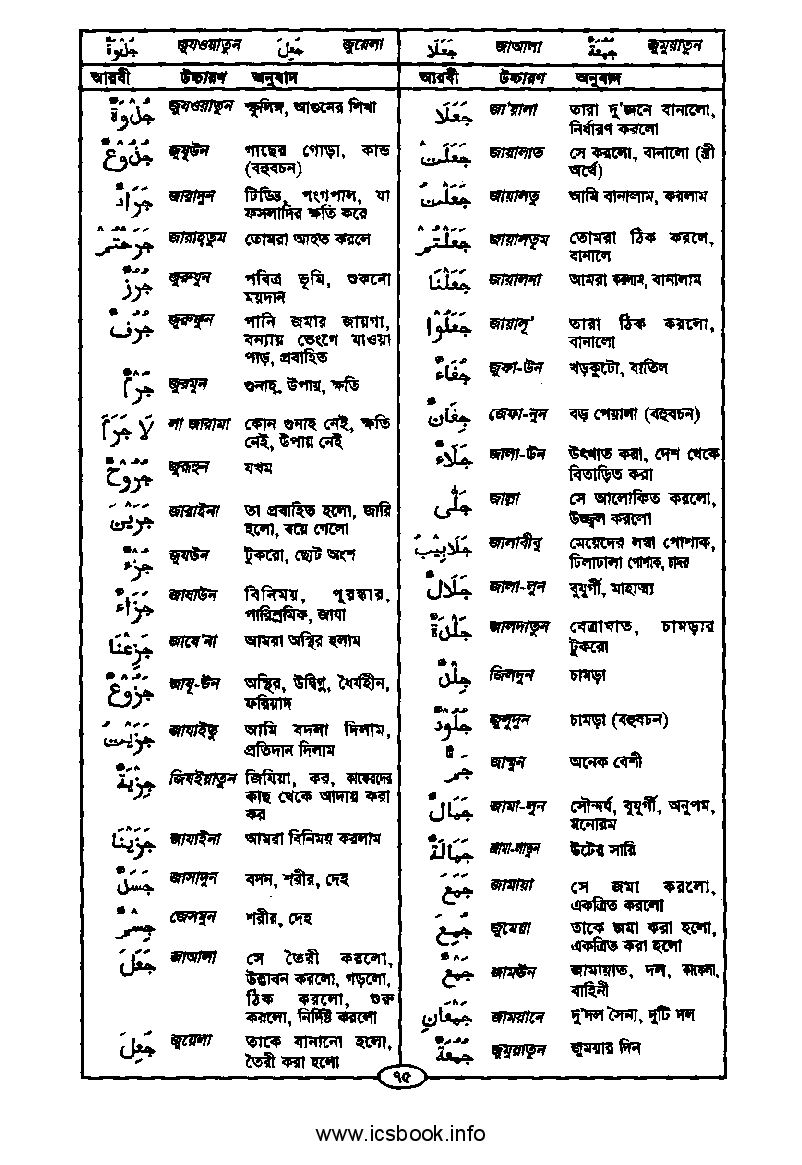 جَذْوَةٌ জুযওয়াতুন جُعِلَ জুয়েলা
আরবী উচ্চারণ অনুবাদ
جَذْوَةٌ জুযওয়াতুন স্ফুলিঙ্গ, আগুনের শিখা
جُذُوْعٌ জুযূউন গাছের গোড়া, কান্ড
(বহুবচন)
جَرَادٌ জারাদুন টিড্ডি, পংগপাল, যা
ফসলাদির ক্ষতি করে
جَرَحْتُمْ জারাহ্তুম তোমরা আহত করলে
جُرُزٌ জুরুযুন পবিত্র ভূমি, শুকনো
ময়দান
جُرُفٌ জুরুফুন পানি জমার জায়গা,
বন্যায় ভেংগে যাওয়া
পাড়, প্রবাহিত
جُرْمٌ জুরমুন গুনাহ্, উপায়, ক্ষতি
لَا جَرَمَ লা জারামা কোন গুনাহ নেই, ক্ষতি
নেই, উপায় নেই
جُرُوْحٌ জুরূহুন যখম
جَرَيْنَ জারাইনা তা প্রবাহিত হলো, জারি
হলো, বয়ে গেলো
جُزْءٌ জুযউন টুকরো, ছোট অংশ
جَزَاءٌ জাযাউন বিনিময়, পুরস্কার,
পারিশ্রমিক, জাযা
جَزِعْنَا জাযে'না আমরা অস্থির হলাম
جَزُوْعٌ জাযূ-উন অস্থির, উদ্বিগ্ন, ধৈর্যহীন,
ফরিয়াদ
جَزَيْتُ জাযাইতু আমি বদলা দিলাম,
প্রতিদান দিলাম
جِزْيَةٌ জিযইয়াতুন জিযিয়া, কর, কাফেরদের
কাছ থেকে আদায় করা
কর
جَزَيْنَا জাযাইনা আমরা বিনিময় করলাম
جَسَدٌ জাসাদুন বদন, শরীর, দেহ
جِسْمٌ জেসমুন শরীর, দেহ
جَعَلَ জাআলা সে তৈরী করলো,
উদ্ভাবন করলো, গড়লো,
ঠিক করলো, শুরু
করলো, নির্দিষ্ট করলো
جُعِلَ জুয়েলা তাকে বানানো হলো,
তৈরী করা হলো
جَعَلَا জাআলা جُمُعَةٌ জুমুয়াতুন
আরবী উচ্চারণ অনুবাদ
جَعَلَا জা'য়ালা তারা দু'জনে বানালো,
নির্ধারণ করলো
جَعَلَتْ জায়ালাত সে করলো, বানালো (স্ত্রী
অর্থে)
جَعَلْتُ জায়ালতু আমি বানালাম, করলাম
جَعَلْتُمْ জায়ালতুম তোমরা ঠিক করলে,
বানালে
جَعَلْنَا জায়ালনা আমরা করলাম, বানালাম
جَعَلُوْا জায়ালূ' তারা ঠিক করলো,
বানালো
جُفَاءٌ জুফা-উন খড়কুটো, বাতিল
جِفَانٌ জেফা-নুন বড় পেয়ালা (বহুবচন)
جَلَاءٌ জালা-উন উৎখাত করা, দেশ থেকে
বিতাড়িত করা
جَلّٰى জাল্লা সে আলোকিত করলো,
উজ্জ্বল করলো
جَلَابِيْبُ জালাবীবু মেয়েদের লম্বা পোশাক,
ঢিলাঢালা পোশাক, চাদর
جَلَالٌ জালা-লুন বুযুর্গী, মাহাত্ম্য
جَلْدَةٌ জালদাতুন বেত্রাঘাত, চামড়ার
টুকরো
جِلْدٌ জিলদুন চামড়া
جُلُوْدٌ জুলুদুন চামড়া (বহুবচন)
جَمٌّ জাম্মুন অনেক বেশী
جَمَالٌ জামা-লুন সৌন্দর্য, বুযুর্গী, অনুপম,
মনোরম
جِمَالَةٌ জামা-লাতুন উটের সারি
جَمَعَ জামায়া সে জমা করলো,
একত্রিত করলো
جُمِعَ জুমেয়া তাকে জমা করা হলো,
একত্রিত করা হলো
جَمْعٌ জামউন জামায়াত, দল, কাফেলা,
বাহিনী
جَمْعَانِ জাময়ানে দু'দল সৈন্য, দুটি দল
جُمُعَةٌ জুমুয়াতুন জুময়ার দিন
৭৫
www.icsbook.info